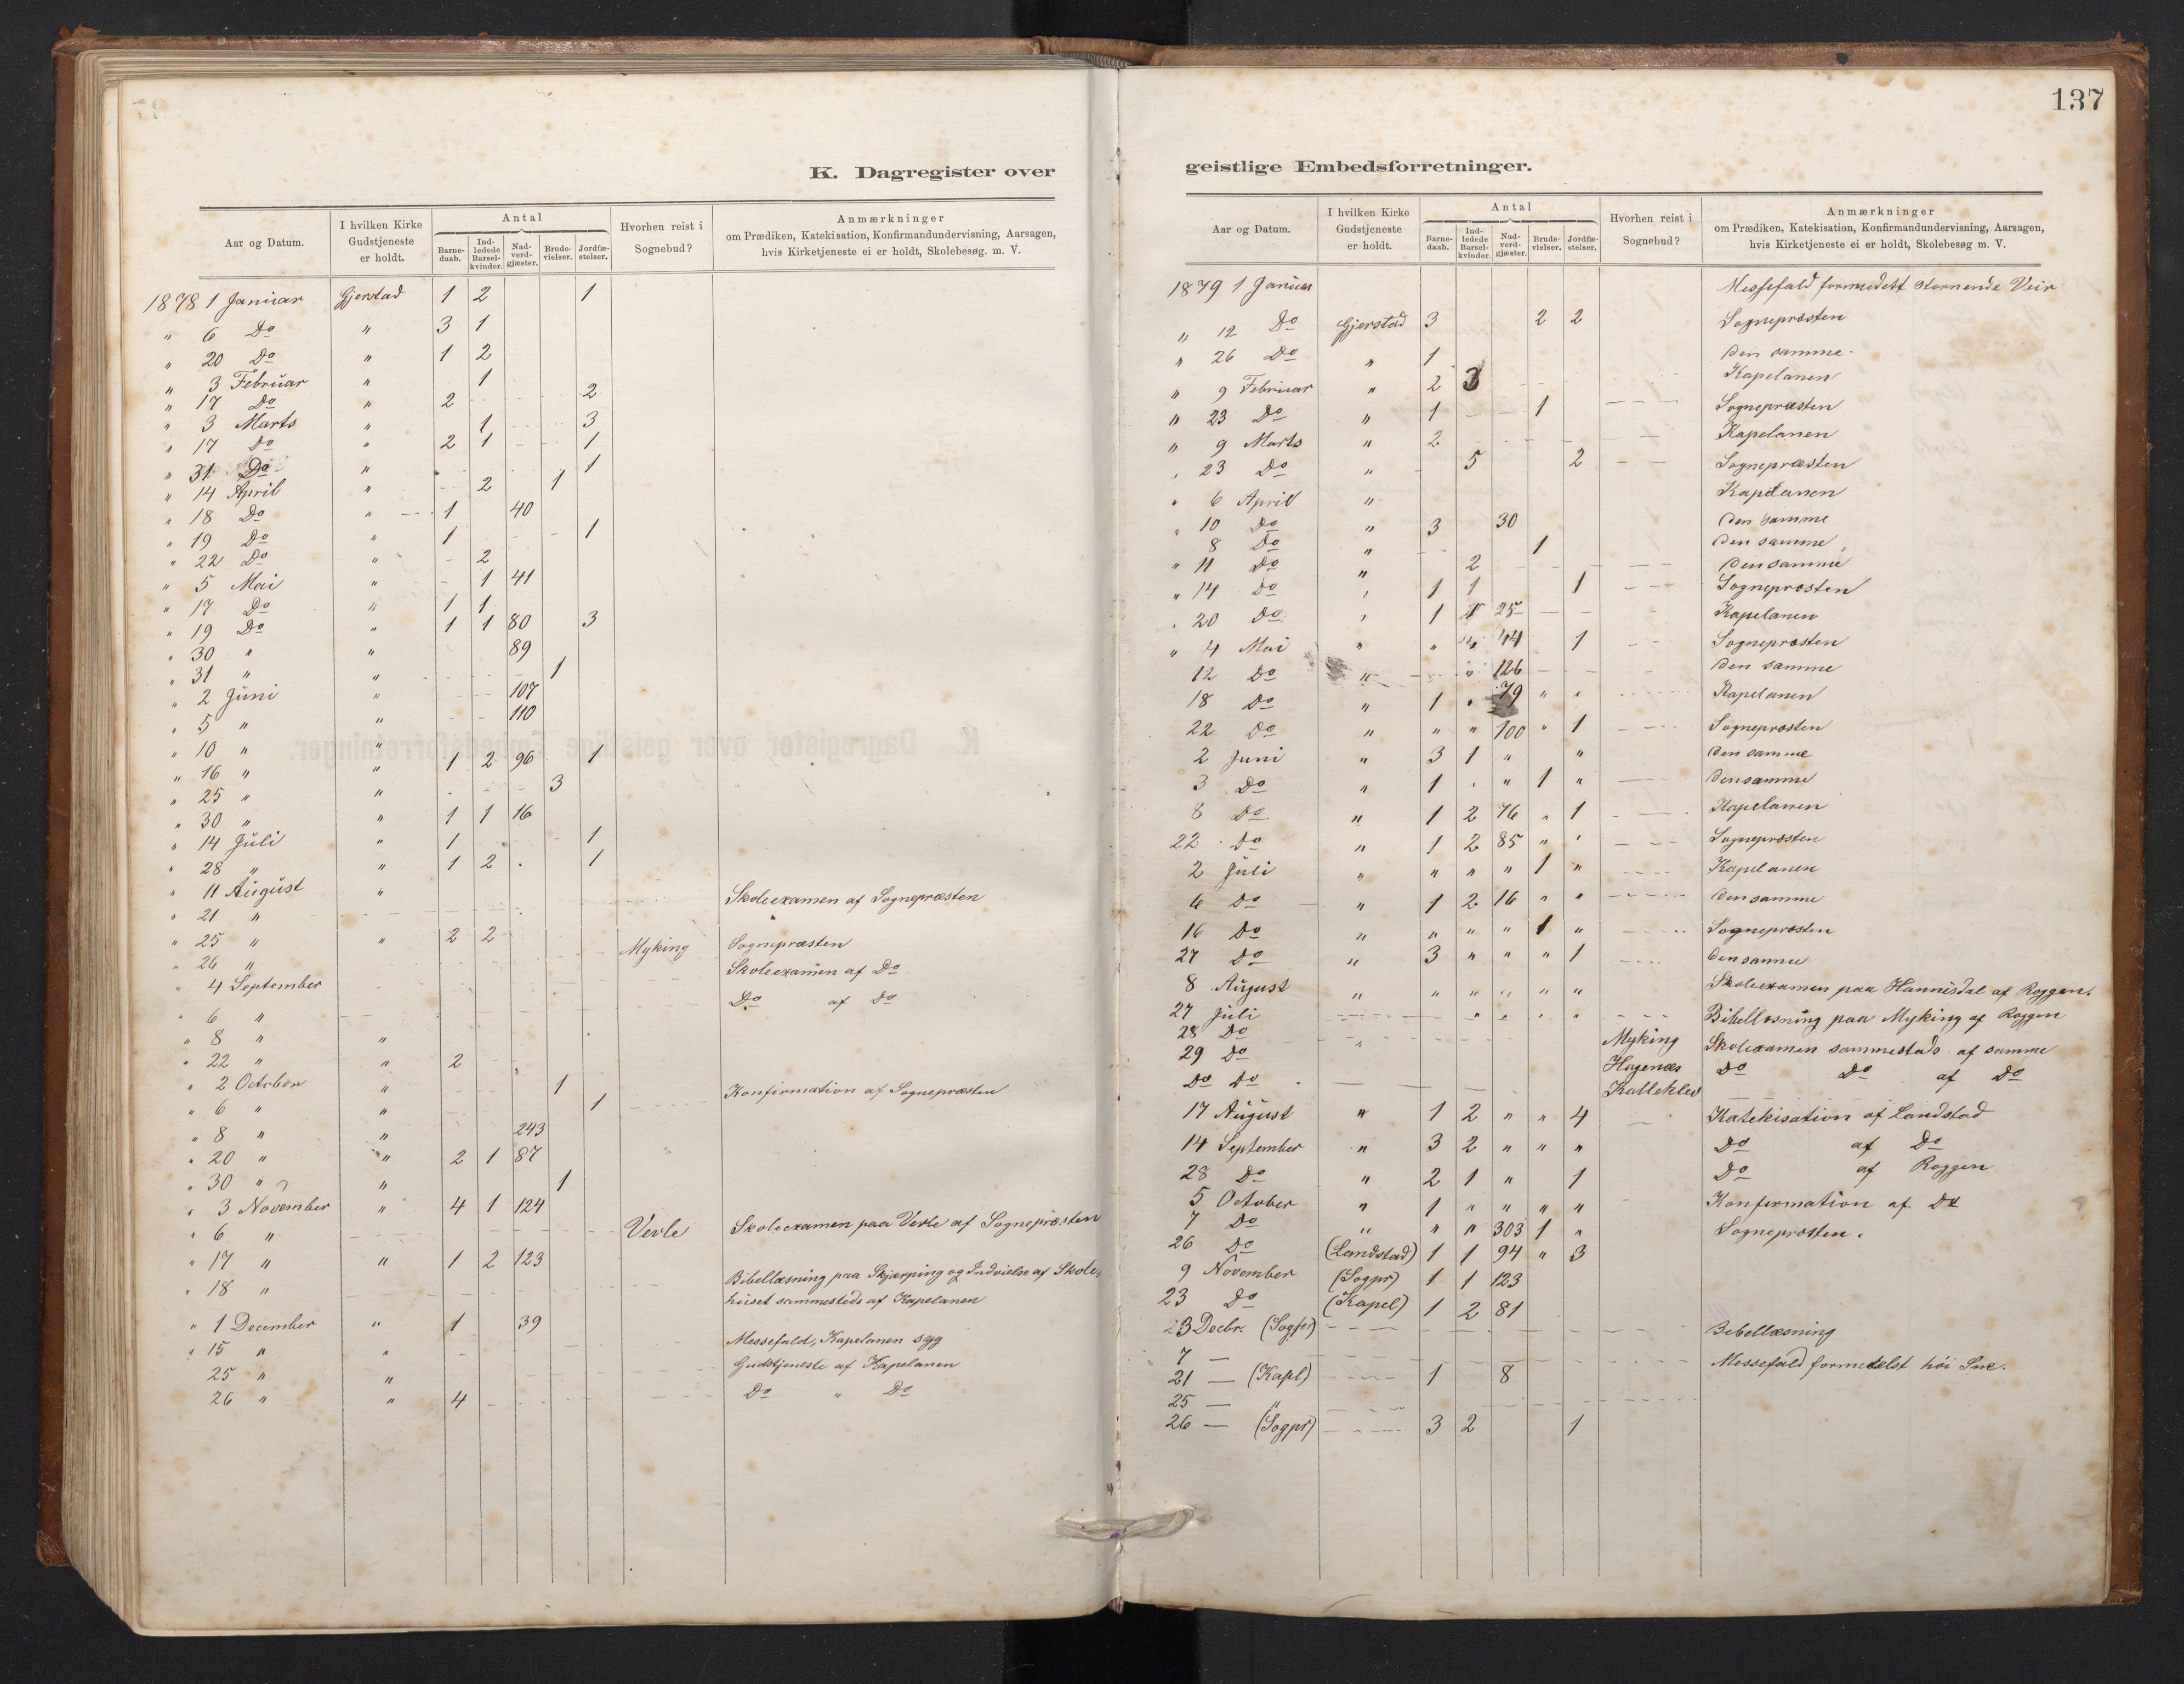 K. Dagregister over
Aar og Datum.
I hvilken Kirke Gudstjeneste er holdt.
Antal
Barne-daab.
Ind-ledede Barsel-kvinder.
Nad-verd-gjæster.
Brude-vielser.
Jordfæ-stelser.
Hvorhen reist i Sognebud?
Anmærkninger
om Prædiken, Katekisation, Konfirmandundervisning, Aarsagen,
hvis Kirketjeneste ei er holdt, Skolebesøg. m. V.
1878 1 Januar Gjerstad 1 2 1
" 6 Do " 3 1
" 20 Do " 1 2
" 3 Februar " 1
" 17 Do " 2 2
" 3 Marts " 1 3
" 17 Do " 2 1 1
" 31 Do " 1
" 14 April " 2 1
" 18 Do " 1 40
" 19 Do " 1 1
" 22 Do " 2
" 5 Mai " 1 41
" 17 Do " 1 1
" 19 Do " 1 1 80 3
" 30 " " 89
" 31 " " 1
" 2 Juni " 107
" 5 " " 110
" 10 " "
" 16 " " 1 2 96 1
" 25 " " 3
" 30 " " 1 1 16
" 14 Juli " 1 1
" 28 " " 1 2 1
" 11 August "
" 21 " Skoleexamen af Sognepræsten
" 25 " " 2 2 Sognepræsten
" 26 " Myking Skoleexamen af Do
" 4 September Do af Do
" 6 "
" 8 " "
" 22 " " 2
" 2 October " 1 Konfirmation af Sognepræsten
" 6 " " 1
" 8 " " 243
" 20 " " 2 1 87
" 30 " " 1
" 3 November " 4 1 124
" 6 " Verle Skoleexamen paa Verle af Sognepræsten
" 17 " " 1 2 123
" 18 " Bibellæsning paa Skjærping og Indvielse af Skole-
huset sammesteds af Kapelanen
" 1 December " 1 39
" 15 " " Messefald, Kapelanen syg
25 " " Gudstjeneste af Kapelanen
26 " " 4 Do " Do
137
geistlige Embedsforretninger.
Aar og Datum.
I hvilken Kirke Gudstjeneste er holdt.
Antal
Barne-daab.
Ind-ledede Barsel-kvinder.
Nad-verd-gjæster.
Brude-vielser.
Jordfæ-stelser.
Hvorhen reist i Sognebud?
Anmærkninger
om Prædiken, Katekisation, Konfirmandundervisning, Aarsagen,
hvis Kirketjeneste ei er holdt, Skolebesøg m. V.
1879 1 Januar Messefald formedelst stormende Veir
" 12 Do Gjerstad 3 2 2 Sognepræsten
" 26 Do " 1 Den samme.
" 9 Februar " 2 3 Kapelanen
" 23 Do " 1 1 Sognepræsten
" 9 Marts " 2 Kapelanen
" 23 Do " 5 2 Sognepræsten
" 6 April " Kapelanen
" 10 Do " 3 30 Den samme
8 Do " 1 Den samme
" 11 Do " 2 Den samme
" 14 Do " 1 1 1 Sognepræsten
" 20 Do " 1 1 25 Kapelanen
" 4 Mai " " " 44 1 Sognepræsten
12 Do " " 126 Den samme
18 Do " 1 " 79 " " Kapelanen
22 Do " " " 100 " 1 Sognepræsten
2 Juni " 3 1 " " Den samme
3 Do " 1 " " 1 " Den samme
8 Do " 1 2 76 " 1 Kapelanen
22 Do " 1 2 85 " " Sognepræsten
2 Juli " " " " 1 " Kapelanen
6 Do " 1 2 16 " " Den samme
16 Do " " " " 1 " Sognepræsten
27 Do " 3 " " " 1 Den samme
8 August " " " " " " Skoleexamen paa Hannisdal af Roggen.
27 Juli " " " " Bibellæsning paa Myking af Roggen
28 Do Myking Skolexamen sammesteds af samme
29 Do Hagenæs Do Do af Do
Do Do Kalleklev
17 August " 1 2 " " 4 Katekisation af Landstad
14 September " 3 2 " " " Do af Do
28 Do " 2 1 " 1 Do af Roggen
5 October " 1 " " " " Konfirmation af Do
7 Do " " " 303 1 " Sognepræsten.
26 Do (Landstad) 1 1 94 " 3
9 November (Sogpr) 1 1 123
23 Do (Kapel) 1 2 81
3 Decbr. (Sogpr) Bibellæsning
7 — Messefald formedelst höi Sne.
21 — (Kapl) 1 8
25 — "
26 — (Sogpr) 3 2 1